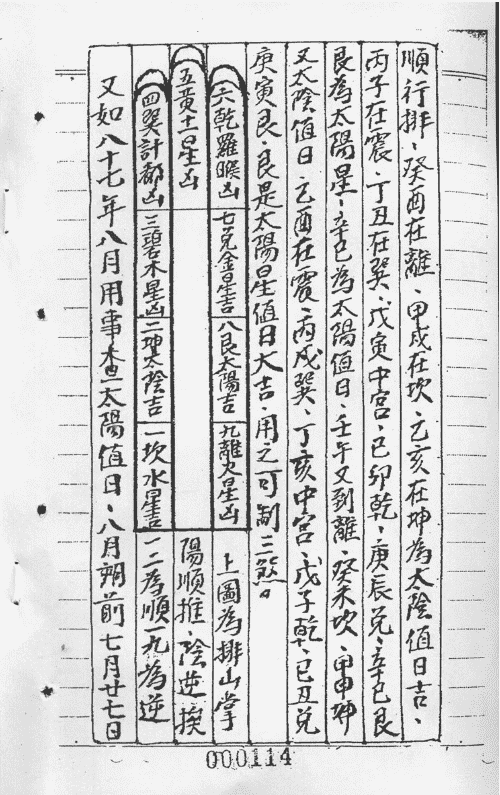 順行排、癸酉在離、甲戌在坎、乙亥在坤為太陰值日吉、
丙子在震、丁丑在巽、戊寅中宮、己卯乾、庚辰兌、辛巳艮
艮為太陽星、辛巳為太陽值日、壬午又到離、癸未坎、甲申坤
又太陰值日、乙酉在震、丙戌巽、丁亥中宮、戊子乾、己丑兌
庚寅艮、艮是太陽星值日大吉、用之可制三煞。
六乾羅睺凶 七兌金星吉 八艮太陽吉 九離火星凶 上圖為排山掌
五黃土星凶 陽順推、陰逆挨
四巽計都凶 三碧木星凶 二坤太陰吉 一坎水星吉 一二為順 一九為逆
又如八十七年八月用事查太陽值日、八月朔前七月廿七日
000114